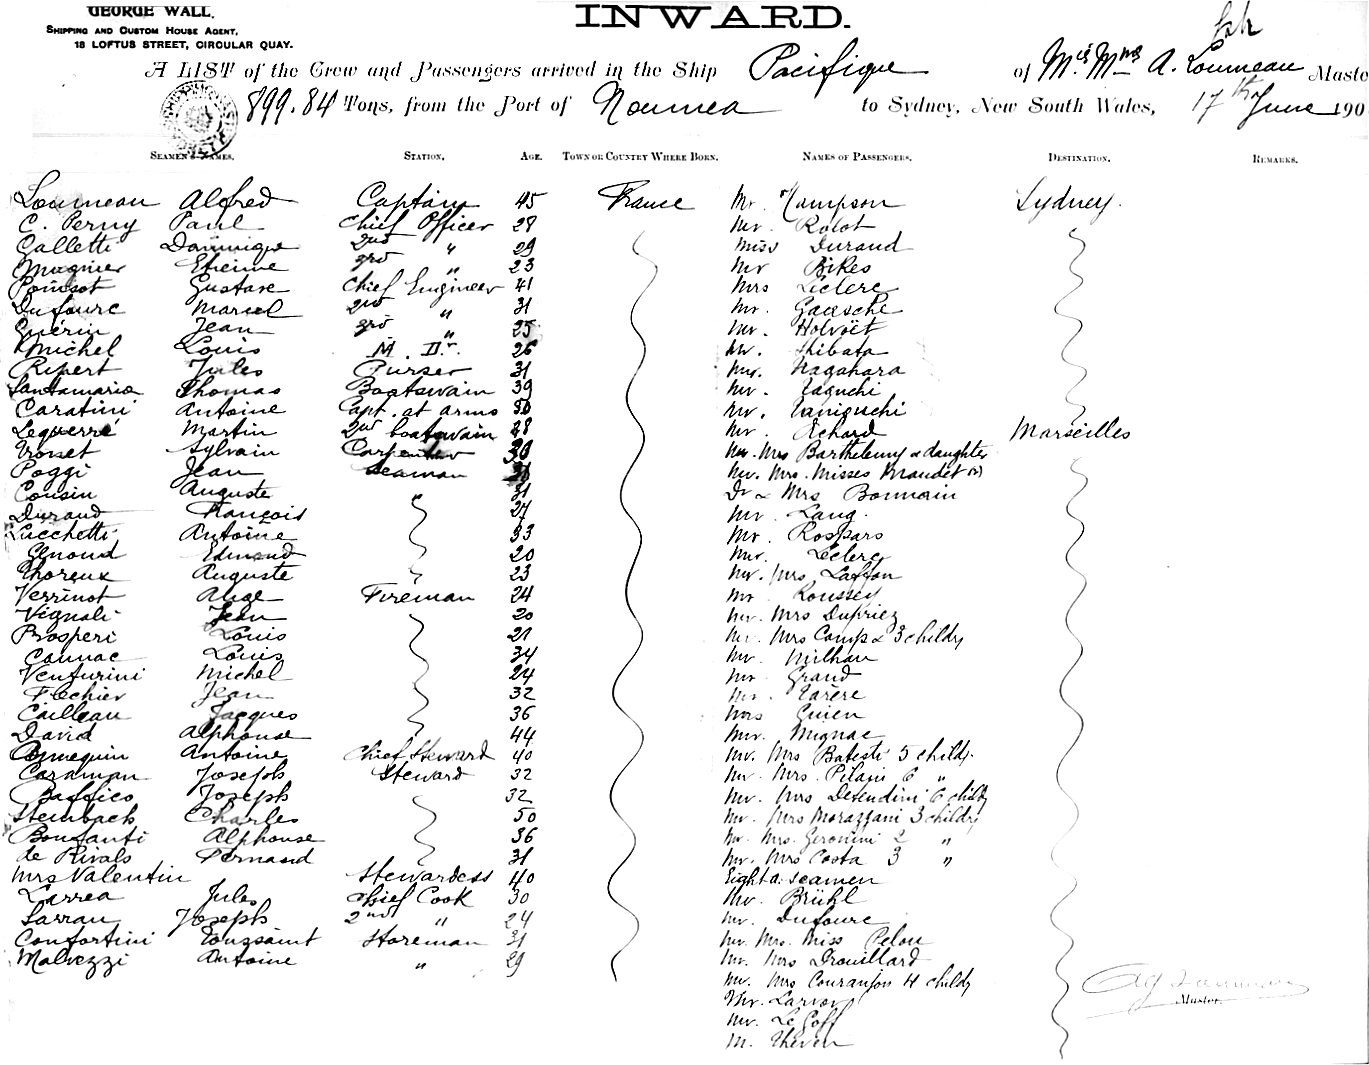 GEORGE WALL,
INWARD.
SHIPPING AND CUSTOM HOUSE AGENT,
18 LOFTUS STREET, CIRCULAR QUAY.
A LIST of the Crew and Passengers arrived in the Ship Pacifique of A. Loumeau Maste
899.84 Tons, from the Port of Noumea to Sydney, New South Wales, 17th June 190
SEAMEN'S NAMES. STATION. AGE. TOWN OR COUNTRY WHERE BORN. NAMES OF PASSENGERS. DESTINATION. REMARKS.
Loumeau Alfred Captain 45 France Mr. Hampson Sydney.
C. Perny Paul Chief Officer 28 Mr. Rolot
Galletti Dominique 2nd " 29 Miss Durand
Mugnier Etienne 3rd " 23 Mr Bikes
Poinsot Gustave Chief Engineer 41 Mrs Leclerc
Dufourc Marcel 2nd " 31 Mr. Gaesche
Guérin Jean 3rd " 25 Mr. Holvoët
Michel Louis M. Dr. 26 Mr. Shibata
Ripert Jules Purser 31 Mr. Nagahara
Santamaria Thomas Boatswain 39 Mr. Taguchi
Caratini Antoine Capt. at arms 30 Mr. Taniguchi
Leguerré Martin 2nd boatswain 28 Mr. Echard Marseilles
Sylvain Carpenter Mr. Mrs Barthelemy & daughter
Poggi Jean Seaman Mr. Mrs. Misses Maudet (2)
Cousin Auguste " 31 Dr & Mrs Bonnain
Durand François 27 Mr. Lang.
Lucchetti Antoine 33 Mr. Rospars
Genoud Edmond 20 Mr. Leclerc
Thoreux Auguste 23 Mr. Mrs Laffon
Verrinot Ange Fireman 24 Mr Roussey
Vignali Jean 20 Mr. Mrs Dupriez
Prosperi Louis 21 Mr. Mrs Camp & 3 childn
Cannac Louis 34 Mr. Milhau
Venturini Michel 24 Mr. Grand
Flechier Jean 32 Mr. Tarère
Cailleau Jacques 36 Mrs Guien
David Alphonse 44 Mr. Mignac
Connequin Antoine Chief Steward 40 Mr. Mrs Batesti 5 childn.
Caraman Joseph Steward 32 Mr. Mrs. Pilani 6 "
Baffico Joseph 32 Mr. Mrs Defendini 6 childn
Steinback Charles 50 Mr. Mrs Morazzani 3 childn
Bonfanti Alphonse 36 Mr. Mrs. Geronimi 2 "
de Rivals Fernand 31 Mr. Mrs Costa 3 "
Mrs Valentin Stewardess 40 Eight a. seamen
Larrea Jules Chief Cook 30 Mr. Brühl
Sarrau Joseph 2nd " 24 Mr. Dufourc
Confortini Toussaint Storeman 31 Mr. Mrs. Miss Pelou
Malvezzi Antoine " 29 Mr. Mrs Drouillard
Mr. Mrs Couranjon 4 childn
Mr. Larvor
Mr. Le Goff
M. Theven
Master.